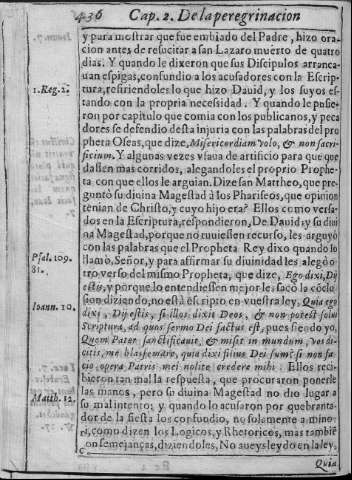 436 Cap. 2. De la peregrinacion
y para mostrar que fue embiado del Padre, hizo ora
cion antes de resucitar a san Lazaro muerto de quatro
dias. Y quando le dixeron que sus Discipulos arranca-
uan espigas, confundio a los acusadores con la Escrip-
1. Reg. 2.
tura, refiriendoles lo que hizo Dauid, y los suyos es-
tando con la propria necesidad. Y quando le pusie-
ron por capitulo que comia con los publicanos, y peca
dores se defendio desta injuria con las palabras del pro
pheta Oseas, que dize, Misericordiam volo, & non sacri-
ficium. Y algunas vezes vsaua de artificio para que que
dassen mas corridos, alegandoles el proprio Prophe-
ta con que ellos le arguian. Dize san Mattheo, que pre
guntò su diuina Magestad à los Phariseos, que opinion
tenian de Christo, y cuyo hijo era? Ellos como versa-
dos en la Escriptura, respondieron, De Dauid: y su diui
na Magestad, porque no tuuiessen recurso, les arguyò
con las palabras que el Propheta Rey dixo quando lo
Psal. 109.
llamò, Señor, y para affirmar su diuinidad les alegò o-
81.
tro verso del mismo Propheta, que dize, Ego dixi, Dij
estis, y porque lo entendiessen mejor les sacò la cõclu
Ioann. 10.
sion diziendo, no està escripto en vuestra ley, Quia ego
dixi, Dij estis, si illos dixit Deos, & non potest solui
Scriptura, ad quos sermo Dei factus est, pues siendo yo,
Quem Pater sanctificauit, & misit in mundum, vos di-
citis, me blasfemare, quia dixi filius Dei sum? si non fa-
cio, opera Patris mei nolite credere mihi: Ellos reci-
bieron tan mal la respuesta, que procuraron ponerle
Matth. 12.
las manos, pero su diuina Magestad no dio lugar a
su mal intento; y quando lo acusaron por quebranta-
dor de la fiesta los confundio, no solamente a mino-
ri, como dizen los Logicos, y Rhetoricos, mas tambiẽ
con semejanças, diziendoles, No aueys leydo en la ley,
Quia